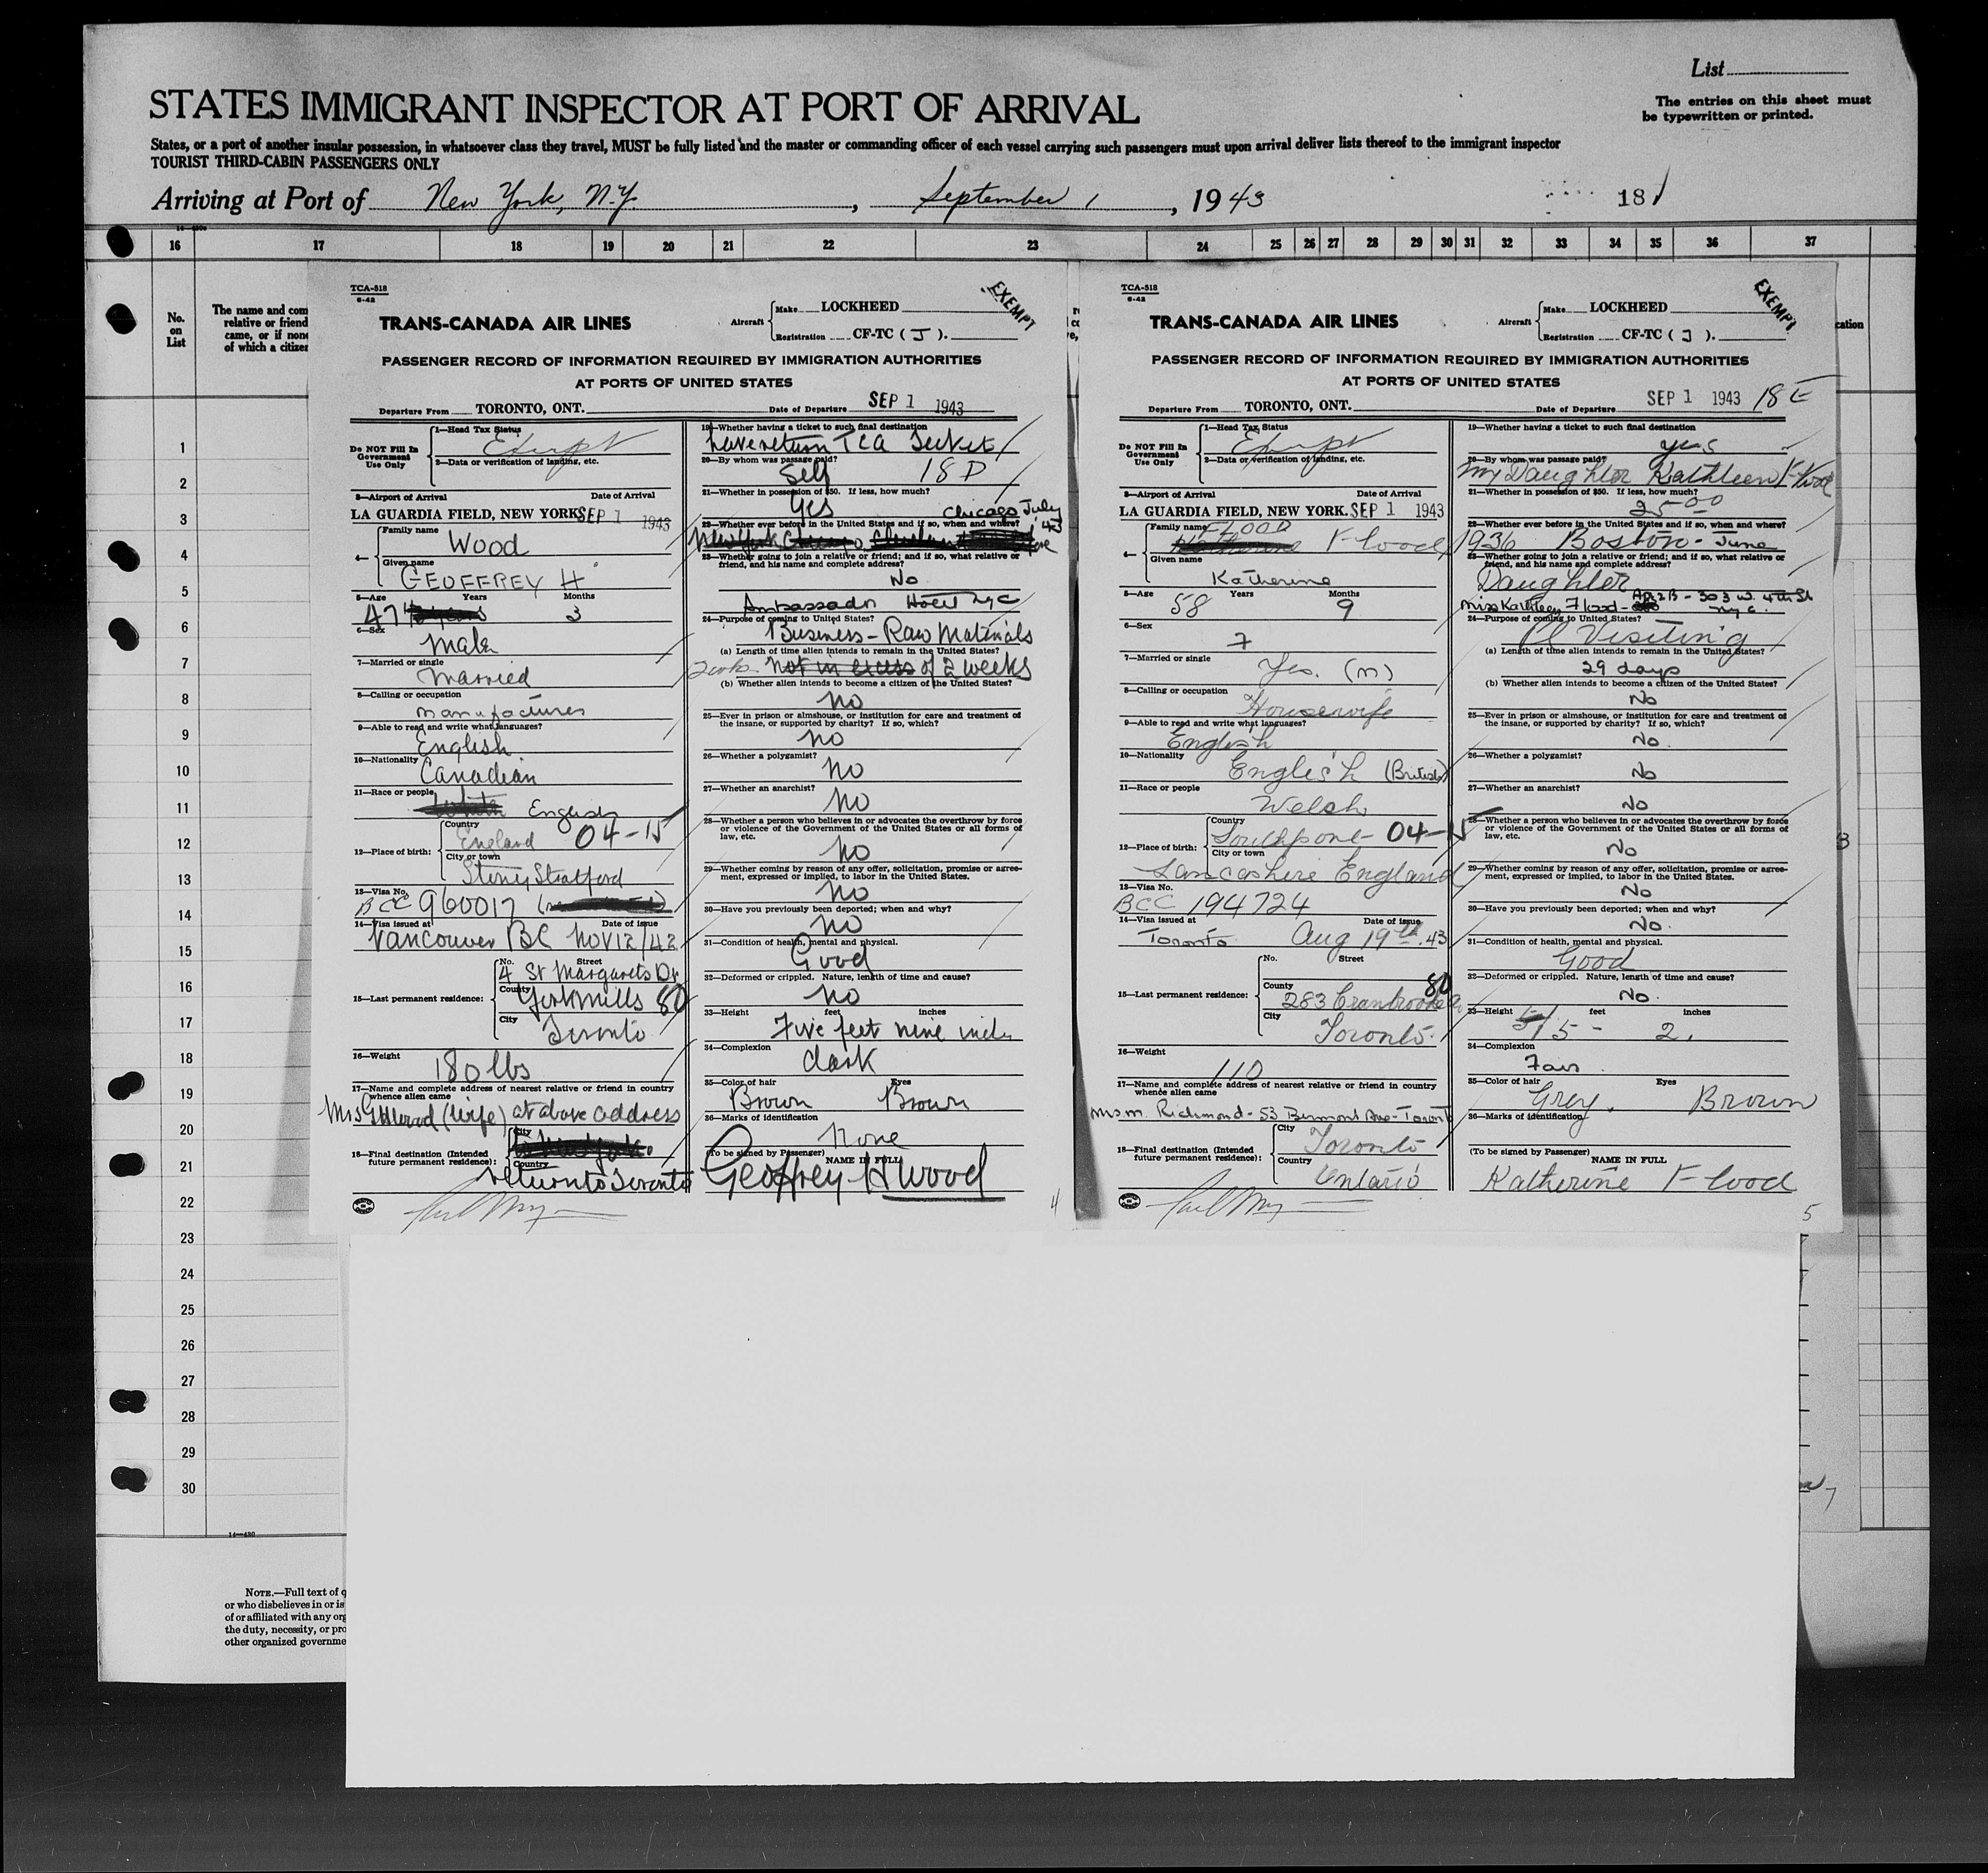 List
STATES IMMIGRANT INSPECTOR AT PORT OF ARRIVAL
The entries on this sheet must
be typewritten or printed.
States, or a port of another insular possession, in whatsoever class they travel, MUST be fully listed and the master or commanding officer of each vessel carrying such passengers must upon arrival deliver lists thereof to the immigrant inspector
TOURIST THIRD-CABIN PASSENGERS ONLY
Arriving at Port of New York, N.Y. , September 1 , 1943 181
16 17 18 19 20 21 22 23 24 25 26 27 28 29 30 31 32 33 34 35 36 37
No.
on
List
The name and com
relative or friend
came, or if none
of which a citizen
cation
1
2
3
4
5
6
7
8
9
10
11
12
13
14
15
16
17
18
19
20
21
22
23
24
25
26
27
28
29
30
14-430
NOTE.—Full text of q
or who disbelieves in or is
of or affiliated with any org
the duty, necessity, or pro
other organized governme
TCA-518
6-42
EXEMPT
TRANS-CANADA AIR LINES
Aircraft
Make LOCKHEED
Registration CF-TC ( J ).
PASSENGER RECORD OF INFORMATION REQUIRED BY IMMIGRATION AUTHORITIES
AT PORTS OF UNITED STATES
Departure From TORONTO, ONT. Date of Departure SEP 1 1943
Do NOT Fill In
Government
Use Only
1—Head Tax Status
Exempt
2—Data or verification of landing, etc.
3—Airport of Arrival Date of Arrival
LA GUARDIA FIELD, NEW YORK SEP 1 1943
4— Family name
Wood
Given name
GEOFFREY H
5—Age Years Months
47 3
6—Sex
Male
7—Married or single
Married
8—Calling or occupation
Manufacturer
9—Able to read and write what languages?
English
10—Nationality
Canadian
11—Race or people
White English
12—Place of birth: Country
England 04-15
City or town
Stony Stratford
13—Visa No.
BCC 960017
14—Visa issued at Date of issue
Vancouver BC Nov 12/42
15—Last permanent residence:
No. Street
4 St Margarets Dr
County
Yorkmills 80
City
Toronto
16—Weight
180 lbs
17—Name and complete address of nearest relative or friend in country
whence alien came
Mrs G H Wood (wife) at above address
18—Final destination (Intended
future permanent residence):
City
Country
return to Toronto
19—Whether having a ticket to such final destination
have return TCA Ticket
20—By whom was passage paid?
Self 18 D
21—Whether in possession of $50. If less, how much?
Yes
Chicago July '43
22—Whether ever before in the United States and if so, when and where?
New York Chicago
23—Whether going to join a relative or friend; and if so, what relative or
friend, and his name and complete address?
No
Ambassador Hotel NYC
24—Purpose of coming to United States?
Business - Raw Materials
(a) Length of time alien intends to remain in the United States?
not in excess of 2 weeks
(b) Whether alien intends to become a citizen of the United States?
No
25—Ever in prison or almshouse, or institution for care and treatment of
the insane, or supported by charity? If so, which?
No
26—Whether a polygamist?
No
27—Whether an anarchist?
No
28—Whether a person who believes in or advocates the overthrow by force
or violence of the Government of the United States or all forms of
law, etc.
No
29—Whether coming by reason of any offer, solicitation, promise or agree-
ment, expressed or implied, to labor in the United States.
No
30—Have you previously been deported; when and why?
No
31—Condition of health, mental and physical.
Good
32—Deformed or crippled. Nature, length of time and cause?
No
33—Height feet inches
Five feet nine inch
34—Complexion
dark
35—Color of hair Eyes
Brown Brown
36—Marks of identification
None
(To be signed by Passenger) NAME IN FULL
Geoffrey H Wood
4
TCA-518
6-42
EXEMPT
TRANS-CANADA AIR LINES
Aircraft
Make LOCKHEED
Registration CF-TC ( J ).
PASSENGER RECORD OF INFORMATION REQUIRED BY IMMIGRATION AUTHORITIES
AT PORTS OF UNITED STATES
Departure From TORONTO, ONT. Date of Departure SEP 1 1943 18 E
Do NOT Fill In
Government
Use Only
1—Head Tax Status
Exempt
2—Data or verification of landing, etc.
3—Airport of Arrival Date of Arrival
LA GUARDIA FIELD, NEW YORK. SEP 1 1943
4— Family name
FLOOD
Katherine Flood
Given name
Katherine
5—Age Years Months
58 9
6—Sex
F
7—Married or single
Yes. (M)
8—Calling or occupation
Housewife
9—Able to read and write what languages?
English
10—Nationality
English (British)
11—Race or people
Welsh
12—Place of birth: Country
Southport 04-15
City or town
Lancashire England
13—Visa No.
BCC 194724
14—Visa issued at Date of issue
Toronto Aug 19th. 43
15—Last permanent residence:
No. Street
County 80
283 Cranbrooke Av
City
Toronto.
16—Weight
110
17—Name and complete address of nearest relative or friend in country
whence alien came
Mrs M. Richmond - 53 Bermont Ave - Toronto
18—Final destination (Intended
future permanent residence):
City
Toronto
Country
Ontario
19—Whether having a ticket to such final destination
yes
20—By whom was passage paid?
My Daughter Kathleen Flood
21—Whether in possession of $50. If less, how much?
25.00
22—Whether ever before in the United States and if so, when and where?
1936 Boston - June
23—Whether going to join a relative or friend; and if so, what relative or
friend, and his name and complete address?
Daughter
Miss Kathleen Flood - Ap 2B - 303 W. 4th St
NYC.
24—Purpose of coming to United States?
Pl Visiting
(a) Length of time alien intends to remain in the United States?
29 days
(b) Whether alien intends to become a citizen of the United States?
No
25—Ever in prison or almshouse, or institution for care and treatment of
the insane, or supported by charity? If so, which?
No.
26—Whether a polygamist?
No
27—Whether an anarchist?
No
28—Whether a person who believes in or advocates the overthrow by force
or violence of the Government of the United States or all forms of
law, etc.
No
29—Whether coming by reason of any offer, solicitation, promise or agree-
ment, expressed or implied, to labor in the United States.
No
30—Have you previously been deported; when and why?
No.
31—Condition of health, mental and physical.
Good
32—Deformed or crippled. Nature, length of time and cause?
No.
33—Height feet inches
5 - 2.
34—Complexion
Fair
35—Color of hair Eyes
Grey. Brown
36—Marks of identification
(To be signed by Passenger) NAME IN FULL
Katherine Flood
5